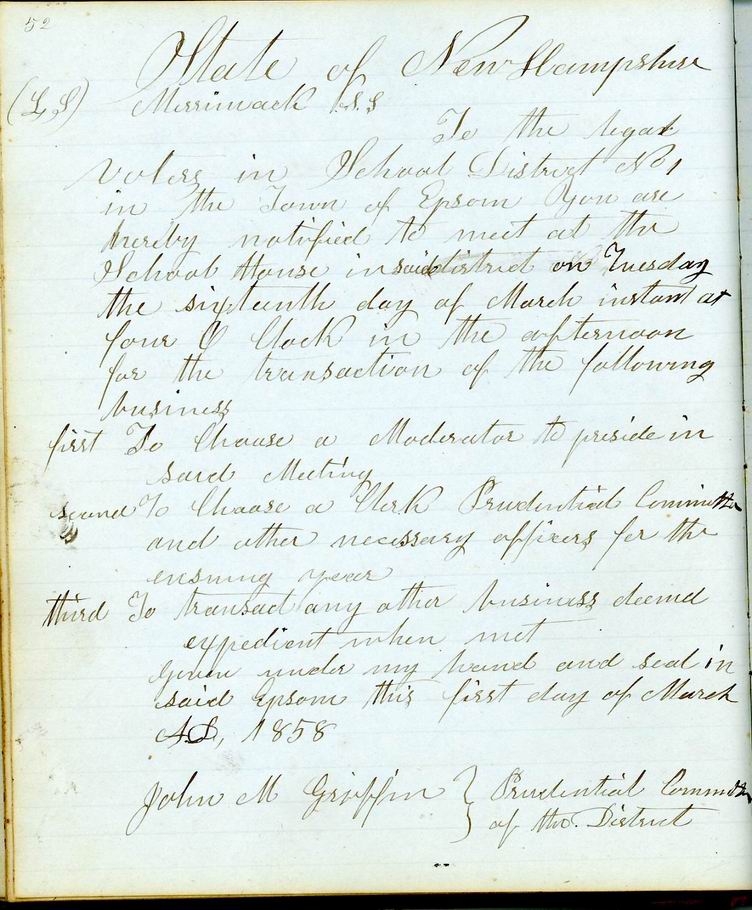 52
State of New Hampshire
(L,S) Merrimack S.S
To the legal
voters in School District No 1
in the Town of Epsom You are
hereby notified to meet at the
School House in said district on Tuesday
the sixteenth day of March instant at
four O Clock in the afternoon
for the transaction of the following
business
first To Choose a Moderator to preside in
said Meeting
second To Choose a Clerk Prudential Committee
and other necessary officers for the
ensuing year
third To transact any other business deemed
expedient when met
Given under my hand and seal in
said Epsom this first day of March
A.D, 1858
John M Griffin } Prudential Committee
of the District